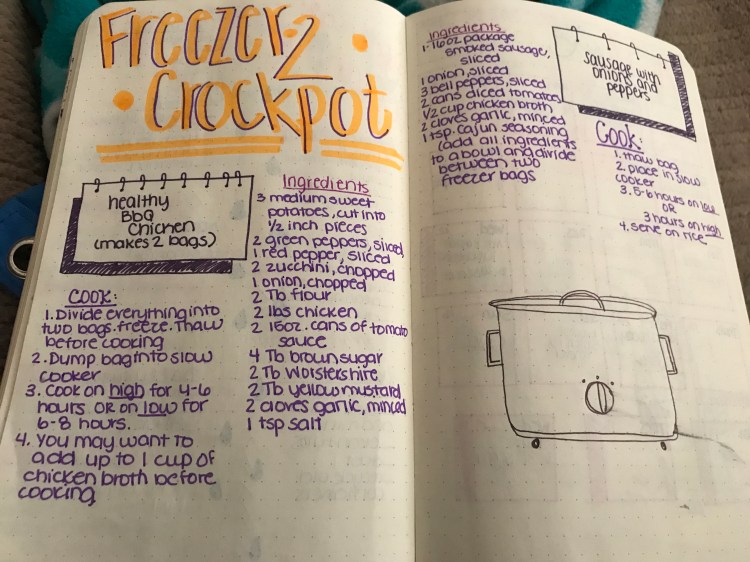 Freezer-2
• Crockpot •
healthy
BBQ
Chicken
(makes 2 bags)
Cook:
1. Divide everything into
two bags. freeze. Thaw
before cooking
2. Dump bag into slow
cooker
3. Cook on high for 4-6
hours OR on low for
6-8 hours.
4. You may want to
add up to 1 cup of
chicken broth before
cooking
Ingredients
3 medium sweet
potatoes, cut into
1/2 inch pieces
2 green peppers, sliced
1 red pepper, sliced
2 zucchini, chopped
1 onion, chopped
2 Tb flour
2 lbs chicken
2 15oz. cans of tomato
sauce
4 Tb brown sugar
2 Tb Worstershire
2 Tb yellow mustard
2 cloves garlic, minced
1 tsp salt
Ingredients
1-16oz package
smoked sausage,
sliced
1 onion, sliced
3 bell peppers, sliced
2 cans diced tomatoes
1/2 cup chicken broth
2 cloves garlic, minced
1 tsp. cajun seasoning
(add all ingredients
to a bowl and divide
between two
freezer bags
sausage with
onions and
peppers
Cook:
1. thaw bag
2. place in slow
cooker
3. 5-6 hours on low
OR
3 hours on high
4. serve on rice